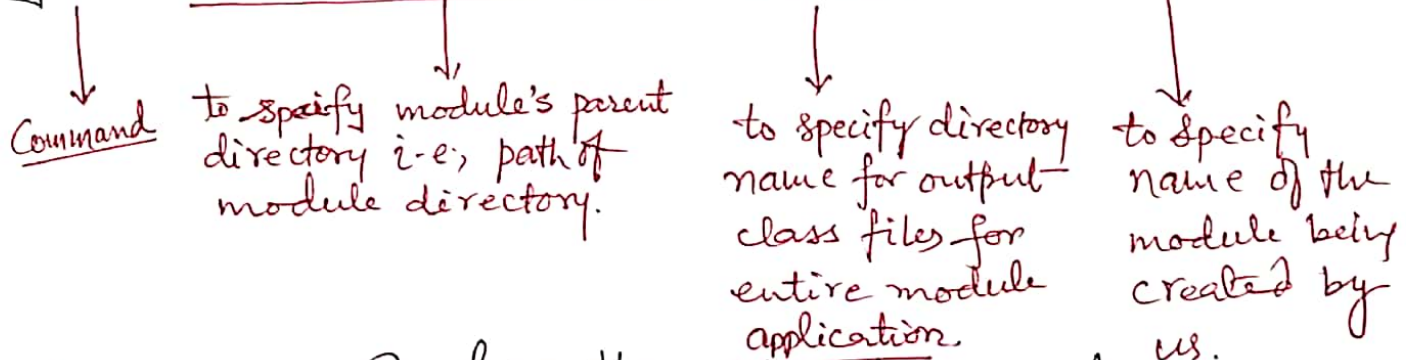 Command
to specify module's parent
directory i-e; path of
module directory.
to specify directory
name for output
class files for
entire module
application.
to specify
name of the
module being
created by
us.